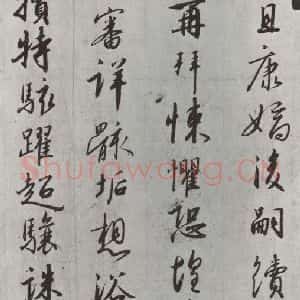 且康嫡後嗣續
再拜悚懼恐惶
審詳骸垢想浴
犢特駭躍超驤誅
Shufawang.Cn